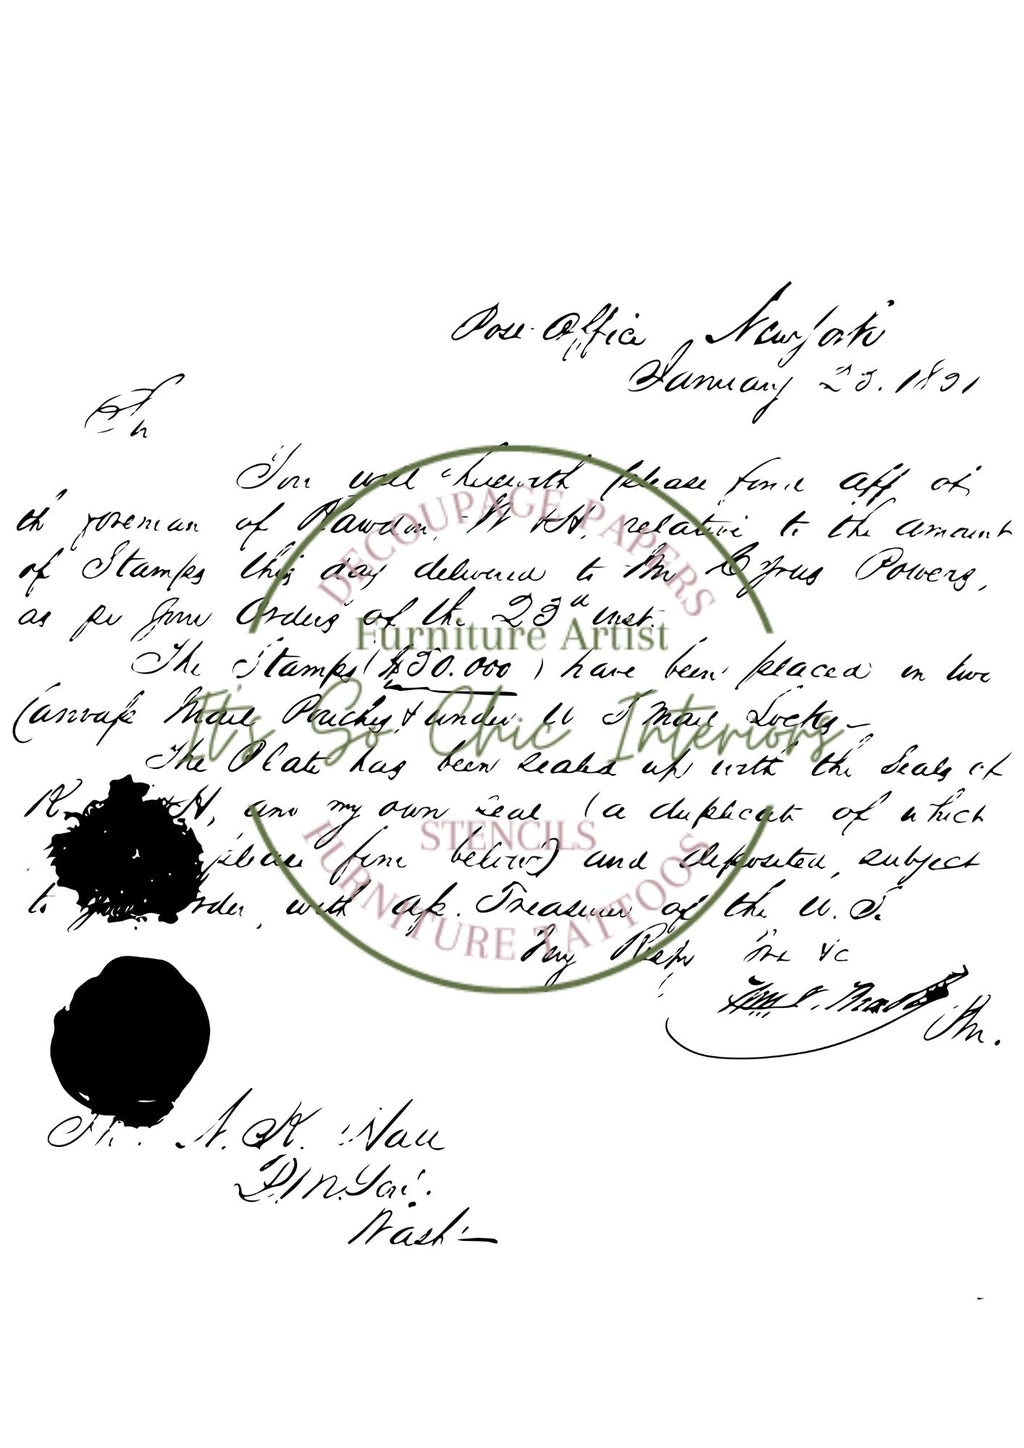 Post Office New York
January 23. 1851
Sir
You will herewith please find aff of
the foreman of Rawdon, W & H, relative to the amount
of Stamps this day delivered to Mr Cyrus Powers,
as per your orders of the 23d inst.
The Stamps ($50.000) have been placed in two
Canvass Mail Pouches & under U S Mail Locks—
The Plate has been sealed up with the Seals of
H, and my own seal (a duplicate of which
please find below) and deposited, subject
to order, with Treasurer of the U. S.
Very Resp &c
Wm V. Brady
Pm.
N. K. Hall
P.M. Gen.
Wash—
DECOUPAGE PAPERS
Furniture Artist
It's So Chic Interiors
STENCILS
FURNITURE TATTOOS